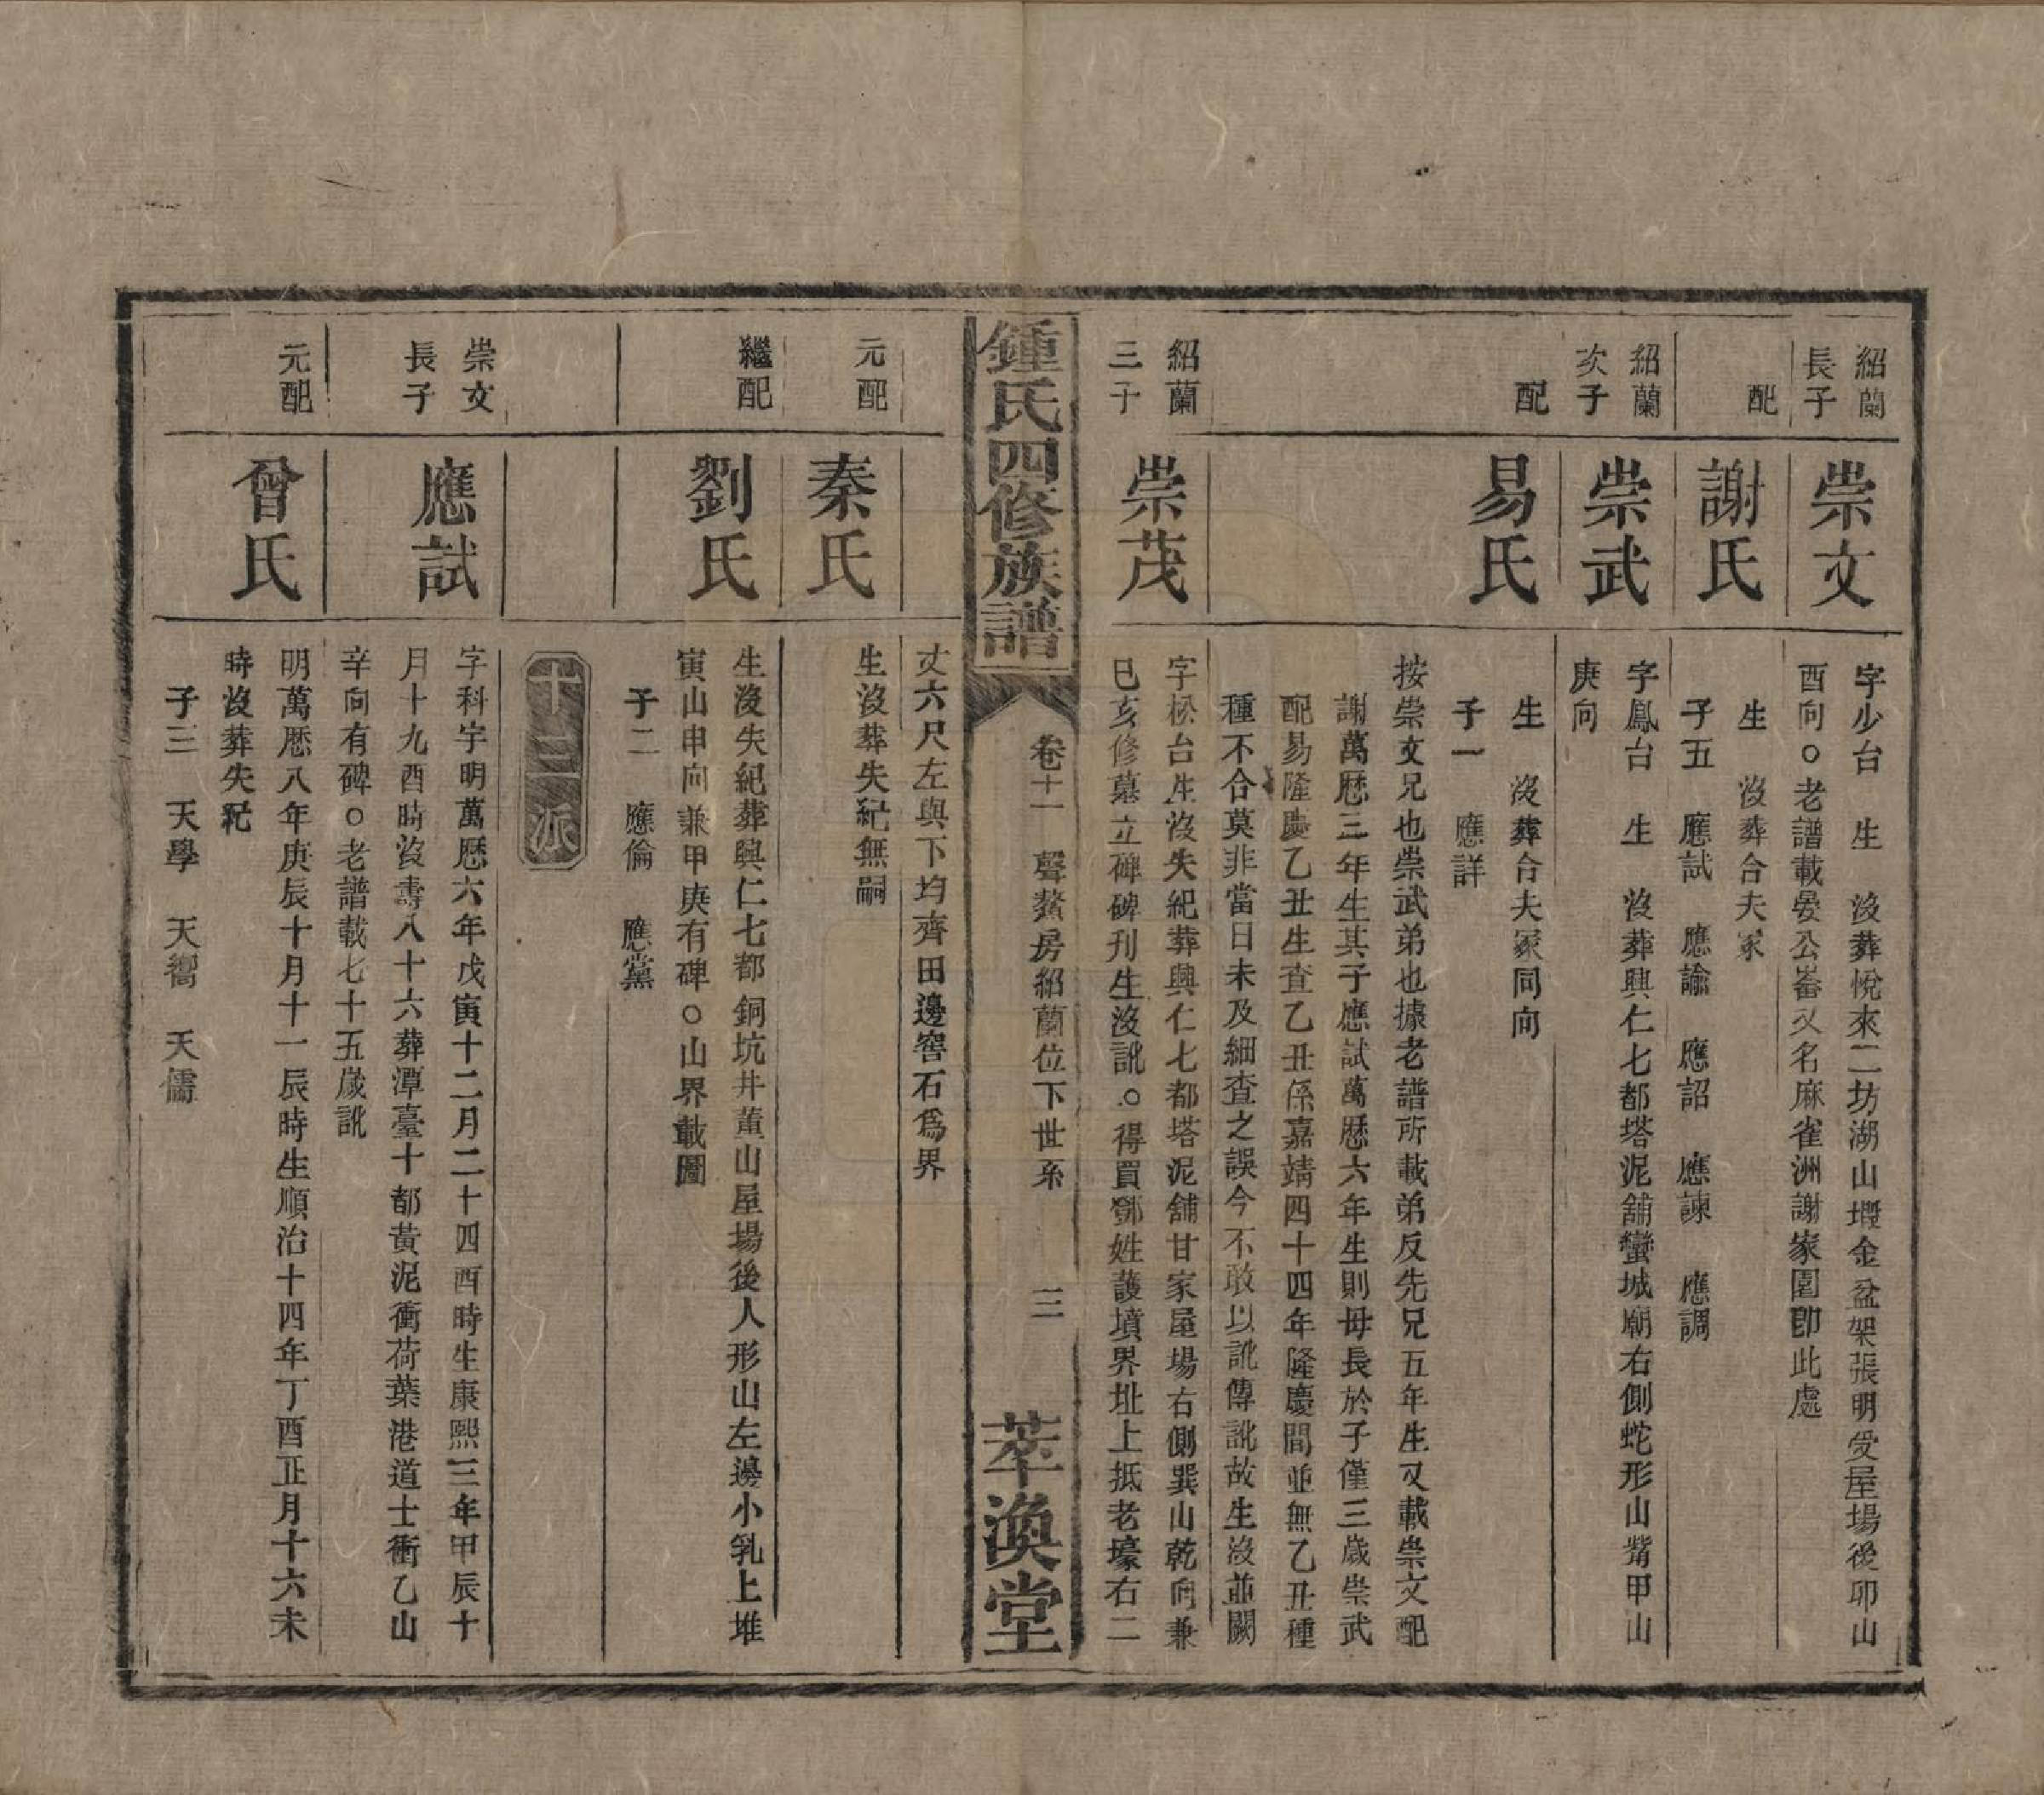 紹蘭
長子
崇文
字少台　生　沒葬悅來二坊湖山堰金盆架張明受屋場後卯山
酉向○老譜載晏公崙又名麻雀洲謝家園即此處
配
謝氏
生　沒葬合夫冢
子五　應試　應諭　應詔　應諫　應調
紹蘭
次子
崇武
字鳳台　生　沒葬興仁七都塔泥舖蠻城廟右側蛇形山嘴甲山
庚向
配
易氏
生　沒葬合夫冢同向
子一　應詳
按崇文兄也崇武弟也據老譜所載弟反先兄五年生又載崇文配
謝萬歷三年生其子應試萬歷六年生則母長於子僅三歲崇武
配易隆慶乙丑生查乙丑係嘉靖四十四年隆慶間並無乙丑種
種不合莫非當日未及細查之誤今不敢以訛傳訛故生沒並闕
紹蘭
三子
崇茂
字松台生沒失紀葬興仁七都塔泥舖甘家屋場右側巽山乾向兼
巳亥修墓立碑碑刊生沒訛○得買鄧姓護墳界址上抵老壕右二
鍾氏四修族譜
卷十一　聲鰲房紹蘭位下世系　三
萃渙堂
丈六尺左與下均齊田邊窖石爲界
元配
秦氏
生沒葬失紀無嗣
繼配
劉氏
生沒失紀葬興仁七都銅坑井董山屋場後人形山左邊小乳上堆
寅山申向兼甲庚有碑○山界載圖
子二　應倫　應黨
十三派
崇文
長子
應試
字科宇明萬歷六年戊寅十二月二十四酉時生康熙三年甲辰十
月十九酉時沒壽八十六葬潭臺十都黃泥衝荷葉港道士衝乙山
辛向有碑○老譜載七十五歲訛
元配
曾氏
明萬歷八年庚辰十月十一辰時生順治十四年丁酉正月十六未
時沒葬失紀
子三　天學　天嚮　天儒